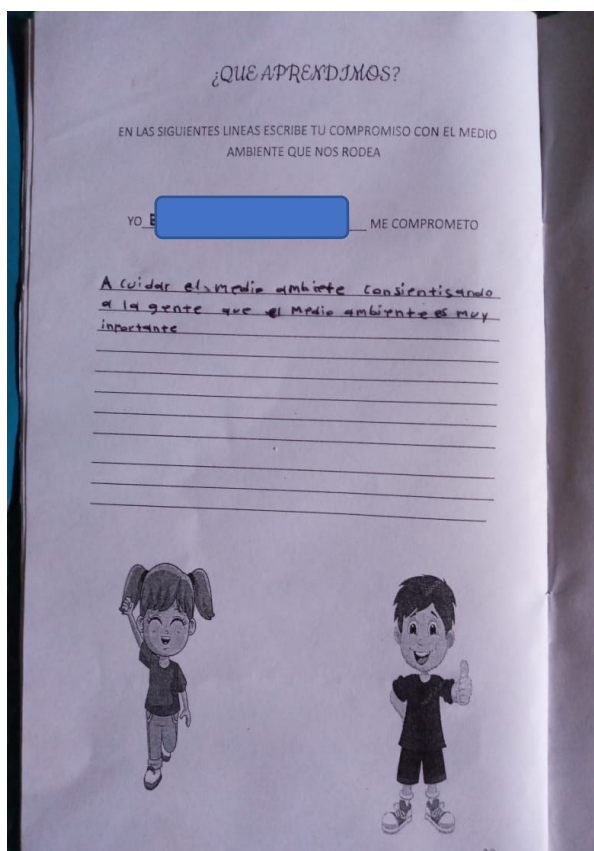 ¿QUE APRENDIMOS?
EN LAS SIGUIENTES LINEAS ESCRIBE TU COMPROMISO CON EL MEDIO
AMBIENTE QUE NOS RODEA
YO E ME COMPROMETO
A cuidar el medio ambiete consientisando
a la gente que el medio ambiente es muy
inportante